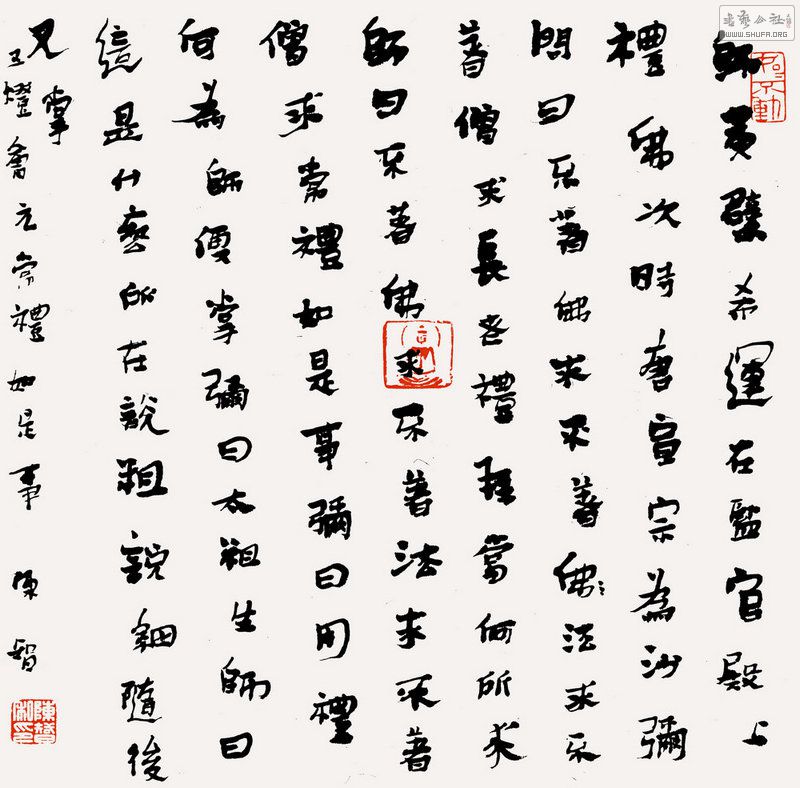 書藝公社
WWW.SHUFA.ORG
師黄檗希運在鹽官殿上
禮佛次時唐宣宗為沙彌
問曰不著佛求不著佛法求不
著僧求長老禮拜當何所求
師曰不著佛求不著法求不著
僧求常禮如是事彌曰用禮
何為師便掌彌曰太粗生師曰
這是什麼所在說粗說細隨後
又掌
五燈會元常禮如是事 陳